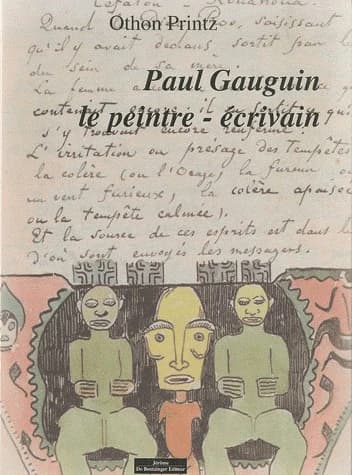 Othon Printz
Quand saisissant
qu'il y avait dedans, sortit par le
du sein de sa mère.
La femme a
Paul Gauguin
le peintre - écrivain
s'y trouvait encore renfermé.
L'irritation ou présage des Tempêtes
la colère (ou l'Orage) la fureur ou
un vent furieux, la colère apaisée
ou la tempête calmée).
Et la source de ces esprits est dans le
d'où sont envoyés les messagers.
Jérôme
Do Bentzinger Editeur